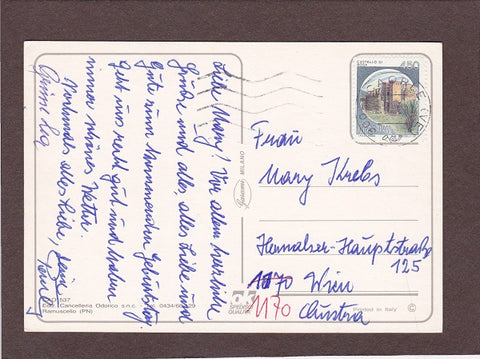 Liebe Mary! Vor allem herzliche
Grüße und alles, alles Liebe und
Gute zum kommenden Geburtstag.
Geht uns recht gut und haben
immer schönes Wetter.
Nochmals alles Liebe, Deine
CASTELLO DI
450
CAORLE (VE)
Frau
Mary Krebs
Hernalser-Hauptstraße
125
1170 Wien
1170
Austria
MILANO
537
Ediz. Cancelleria Odorico s.n.c. Tel. 0434/
Ramuscello (PN)
Printed in Italy ©